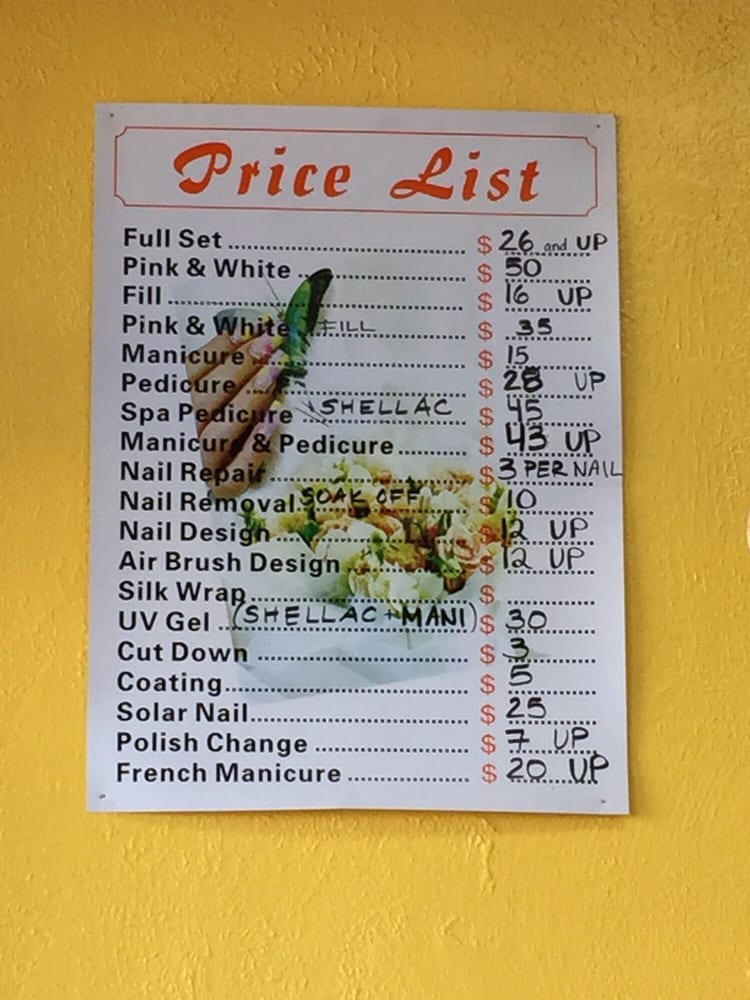 Price List
Full Set $ 26 and UP
Pink & White $ 50
Fill $ 16 UP
Pink & White FILL $ 35
Manicure $ 15
Pedicure $ 28 UP
Spa Pedicure SHELLAC $ 45
Manicure & Pedicure $ 43 UP
Nail Repair $ 3 PER NAIL
Nail Removal SOAK OFF $ 10
Nail Design $ 12 UP
Air Brush Design $ 12 UP
Silk Wrap $
UV Gel (SHELLAC + MANI) $ 30
Cut Down $ 3
Coating $ 5
Solar Nail $ 25
Polish Change $ 7 UP
French Manicure $ 20 UP